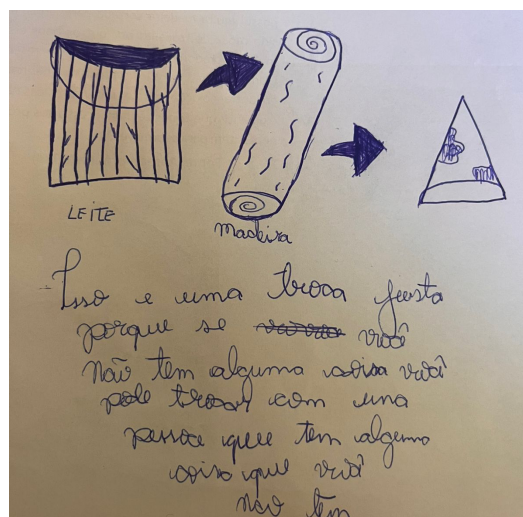 LEITE
madeira
Isso e uma troca justa
porque se você
não tem alguma coisa você
pode trocar com una
pessoa que tem alguma
coisa que você
não tem